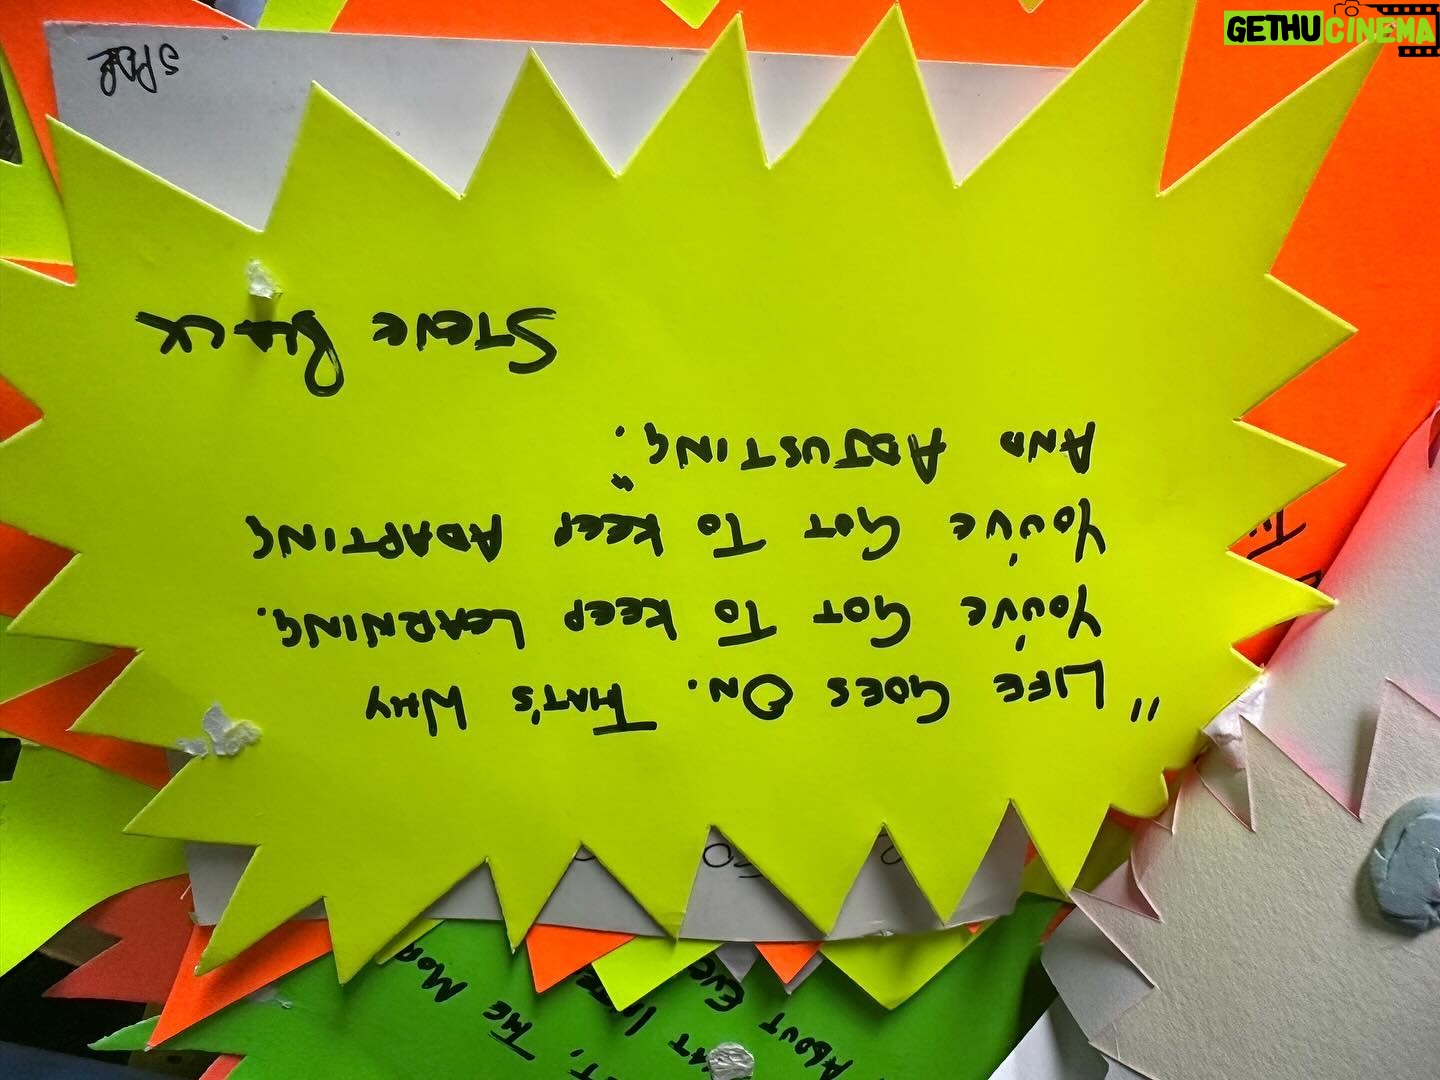 GETHUCINEMA
"LIFE GOES ON. THAT'S WHY
YOU'VE GOT TO KEEP LEARNING.
YOU'VE GOT TO KEEP ADAPTING
AND ADJUSTING."
STEVE BLACK
THE MOR
ABOUT EVE